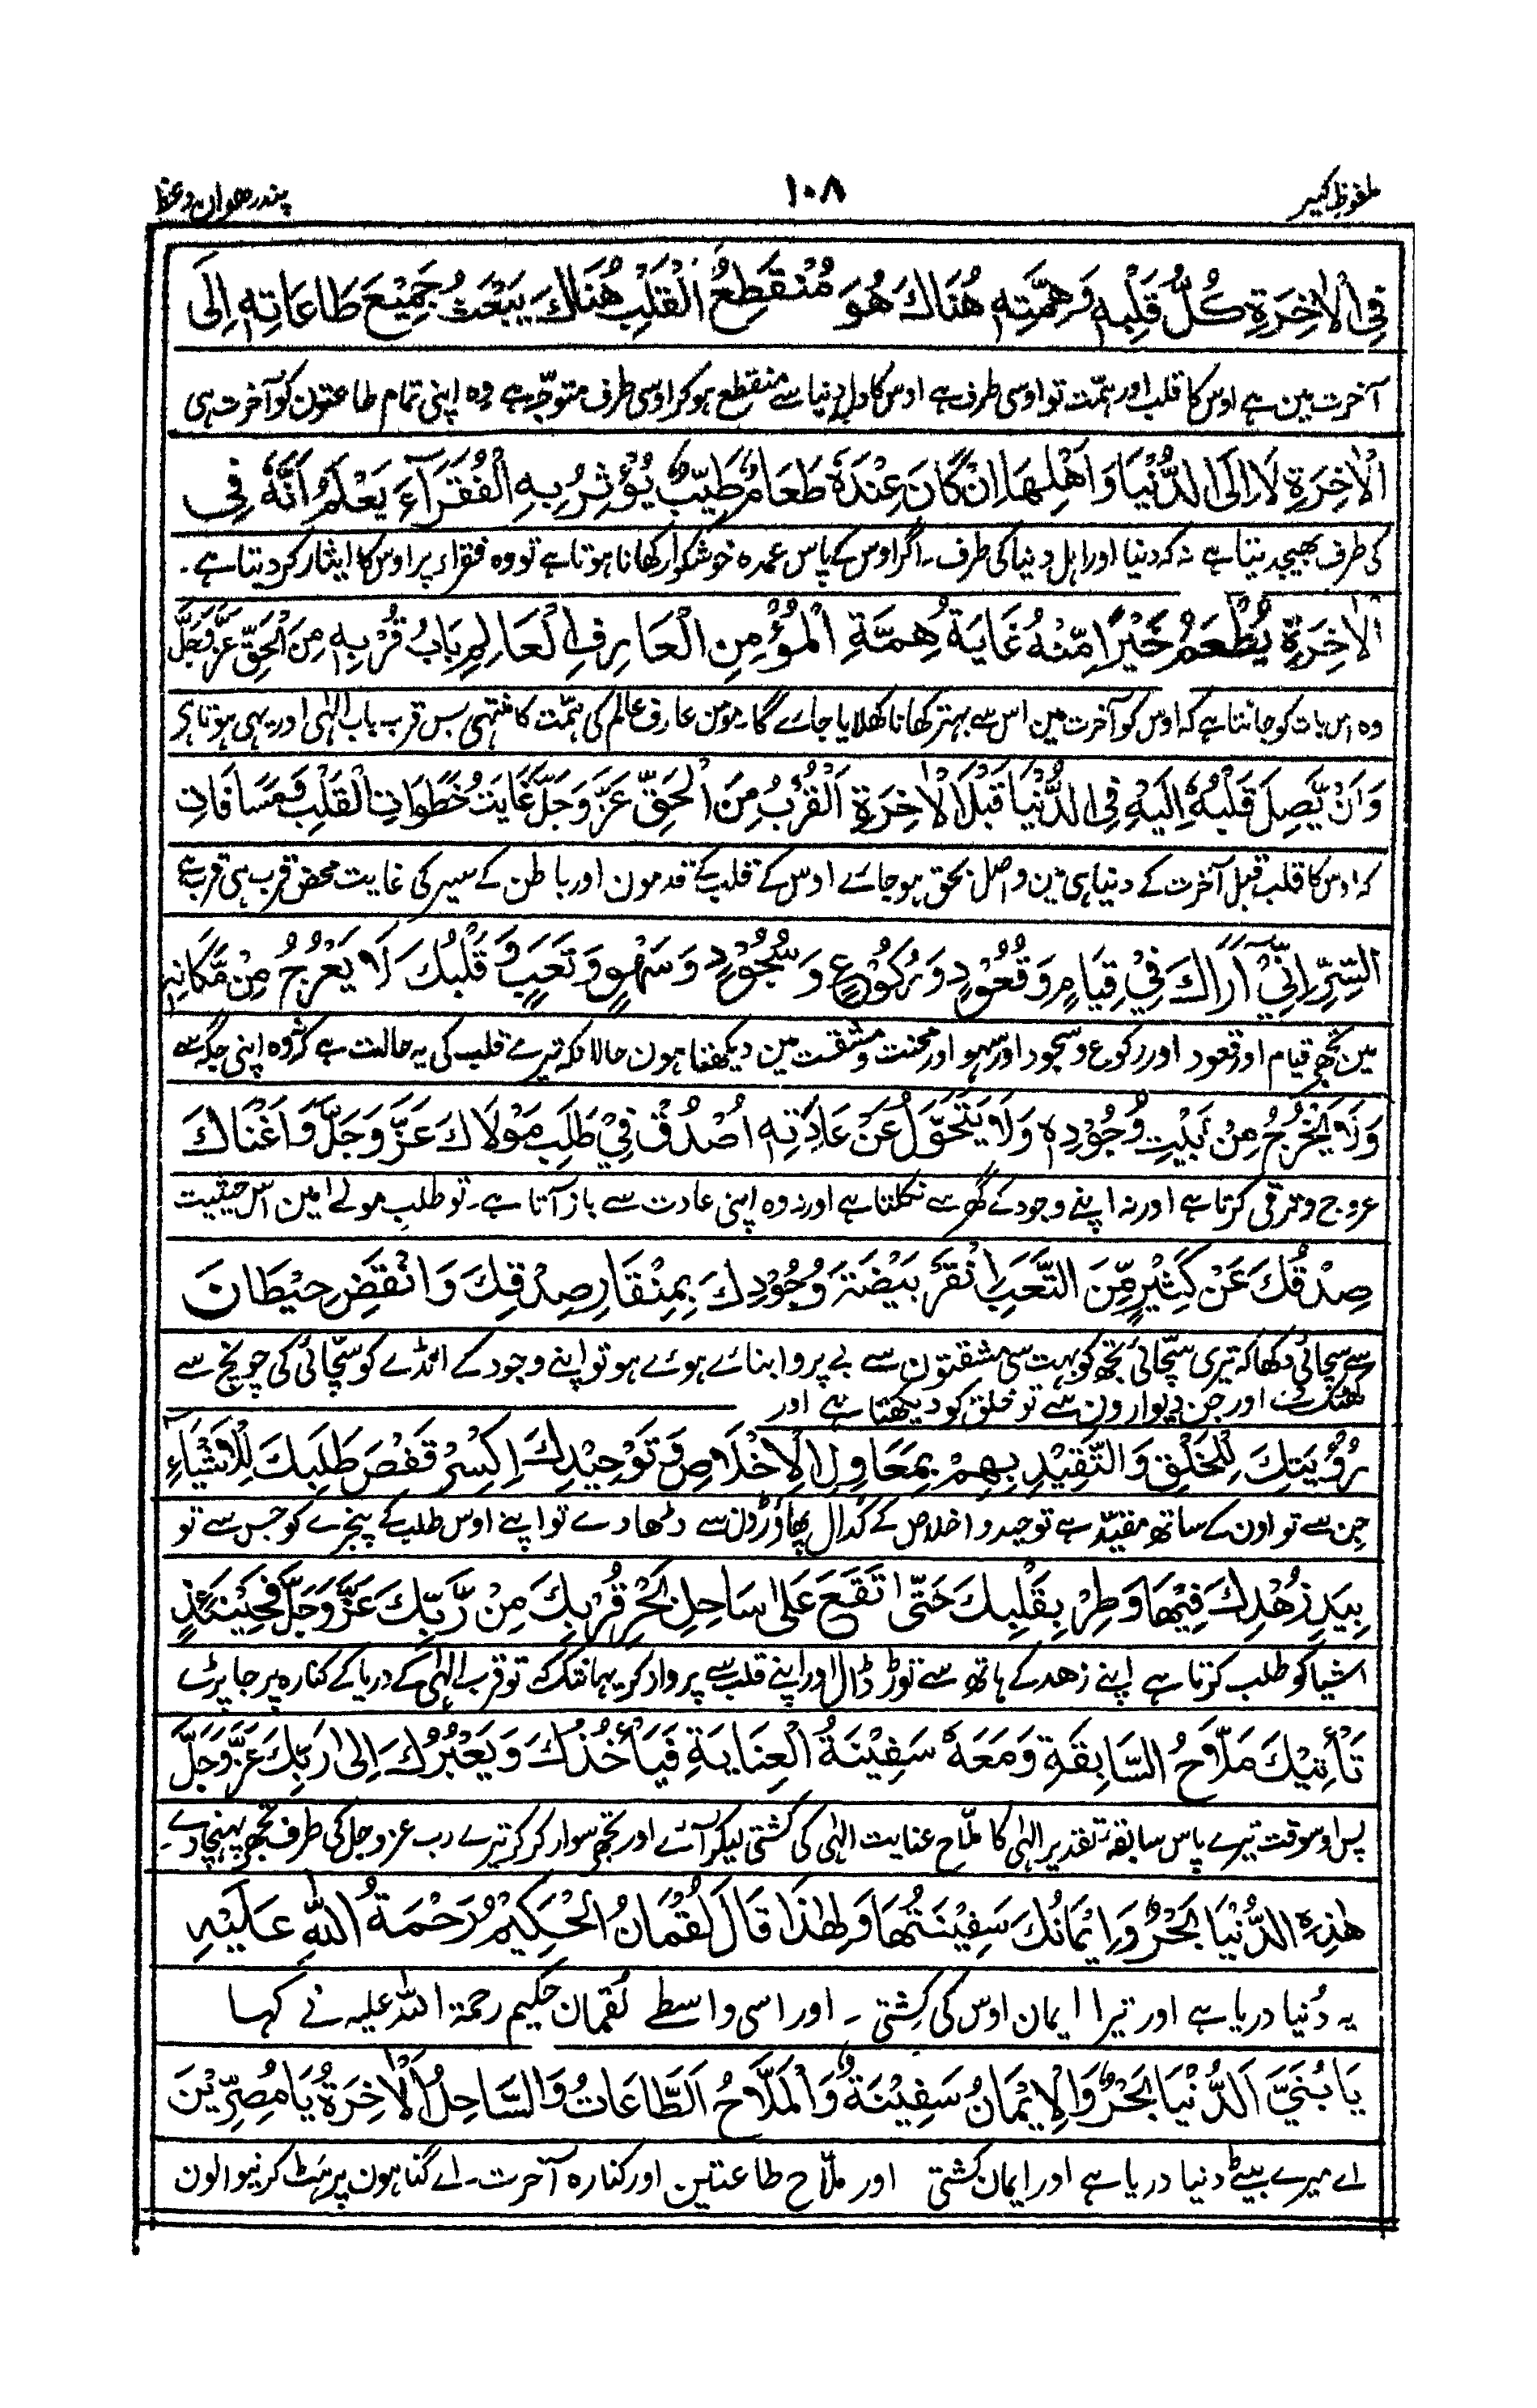 ملفوظِ کبیر ۱۰۸ پندرھوان وعظ
فِی الْاٰخِرَةِ كُلُّ قَلْبِهٖ وَهِمَّتِهٖ هُنَاكَ هُوَ مُنْقَطِعُ الْقَلْبِ هُنَالِكَ يَبْعَثُ جَمِيْعَ طَاعَاتِهٖ اِلَی
آخرت مین ہے اوس کا قلب اور ہمّت تو اوسی طرف ہے اوس کا دل دنیا سے منقطع ہوکر اوسی طرف متوجّہ ہے وہ اپنی تمام طاعتون کو آخرت ہی
الْاٰخِرَةِ لَا اِلَى الدُّنْيَا وَاَهْلِهَا اِنْ كَانَ عِنْدَهٗ طَعَامٌ طَيِّبٌ يُؤْثِرُ بِهِ الْفُقَرَآءَ يَعْلَمُ اَنَّهٗ فِی
کی طرف بھیجدیتا ہے نہ کہ دنیا اور اہل دنیا کی طرف ۔ اگر اوس کے پاس عمدہ خوشگوار کھانا ہوتا ہے تو وہ فقراء پر اوس کا ایثار کر دیتا ہے ۔
الْاٰخِرَةِ يُطْعَمُ خَيْرًا مِّنْهُ غَايَةُ هِمَّةِ الْمُؤْمِنِ الْعَارِفِ الْعَالِمِ بَابُ قُرْبِهٖ مِنَ الْحَقِّ عَزَّ وَجَلَّ
وہ اس بات کو جانتا ہے کہ اوس کو آخرت مین اس سے بہتر کھانا کھلایا جائے گا ۔ مومن عارف عالم کی ہمّت کا منتہی بس قرب باب الٰہی اور یہی ہوتا ہے
وَاَنْ يَّصِلَ قَلْبُهٗ اِلَيْهِ فِی الدُّنْيَا قَبْلَ الْاٰخِرَةِ اَلْقُرْبُ مِنَ الْحَقِّ عَزَّ وَجَلَّ غَايَتُ خُطُوَاتِ الْقَلْبِ وَمَسَافَاتِ
کہ اوس کا قلب قبل آخرت کے دنیا ہی مین واصل بحق ہو جائے اوس کے قلب کے قدمون اور باطن کے سیر کی غایت محض قرب ہی قرب ہے
السِّرِّ اِنِّيْ اَرَاكَ فِيْ قِيَامٍ وَقُعُوْدٍ وَرُكُوْعٍ وَسُجُوْدٍ وَسَهْوٍ وَتَعَبٍ وَقَلْبُكَ لَا يَعْرُجُ مِنْ مَّكَانِهٖ
مین تجھے قیام اور قعود اور رکوع و سجود اور سہو اور محنت و مشقت مین دیکھتا ہون حالانکہ تیرے قلب کی یہ حالت ہے کہ وہ اپنی جگہ سے
وَلَا يَخْرُجُ مِنْ بَيْتِ وُجُوْدِهٖ وَلَا يَتَحَوَّلُ عَنْ عَادَتِهٖ اُصْدُقْ فِيْ طَلَبِ مَوْلَاكَ عَزَّ وَجَلَّ وَاَغْنَاكَ
عروج و ترقی کرتا ہے اور نہ اپنے وجود کے گھر سے نکلتا ہے اور نہ وہ اپنی عادت سے باز آتا ہے ۔ تو طلبِ مولےٰ مین اس حیثیت
صِدْقُكَ عَنْ كَثِيْرٍ مِّنَ التَّعَبِ اُنْقُرْ بَيْضَةَ وُجُوْدِكَ بِمِنْقَارِ صِدْقِكَ وَانْقُضْ حِيْطَانَ
سے سچائی دکھا کہ تیری سچّائی تجھ کو بہت سی مشقتون سے بے پروا بنائے ہوئے ہو تو اپنے وجود کے انڈے کو سچّائی کی چونچ سے
اور جن دیوارون سے تو خلق کو دیکھتا ہے اور
رُؤْيَتِكَ لِلْخَلْقِ وَالتَّقْيِيْدِ بِهِمْ بِمَعَاوِلِ الْاِخْلَاصِ وَتَوْحِيْدِكَ اِكْسِرْ قَفَصَ طَلَبِكَ لِلْاَشْيَاءِ
جن سے تو اون کے ساتھ مقیّد ہے توحید و اخلاص کے کُدال پھاؤڑون سے ڈھا دے تو اپنے اوس طلب کے پنجرے کو جس سے تو
بِيَدِ زُهْدِكَ فِيْهَا وَطِرْ بِقَلْبِكَ حَتّٰى تَقَعَ عَلٰى سَاحِلِ بَحْرِ قُرْبِكَ مِنْ رَّبِّكَ عَزَّ وَجَلَّ فَحِيْنَئِذٍ
اشیا کو طلب کرتا ہے اپنے زھد کے ہاتھ سے توڑ ڈال اور اپنے قلب سے پرواز کر یہانتک کہ تو قرب الٰہی کے دریا کے کنارہ پر جا پڑے
تَأْتِيْكَ مَلَّاحُ السَّابِقَةِ وَمَعَهٗ سَفِيْنَةُ الْعِنَايَةِ فَيَأْخُذُكَ وَيَعْبُرُكَ اِلٰى رَبِّكَ عَزَّ وَجَلَّ
پس اوسوقت تیرے پاس سابقۂ تقدیر الٰہی کا ملّاح عنایت الٰہی کی کشتی لیکر آئے اور تجھے سوار کرکر تیرے رب عزوجل کی طرف تجھے پہنچا دے ۔
هٰذِهِ الدُّنْيَا بَحْرٌ وَاِيْمَانُكَ سَفِيْنَتُهَا وَلِهٰذَا قَالَ لُقْمَانُ الْحَكِيْمُ رَحْمَةُ اللّٰهِ عَلَيْهِ
یہ دُنیا دریا ہے اور تیرا ایمان اوس کی کشتی ۔ اور اسی واسطے لُقمان حکیم رحمۃ اللّٰہ علیہ نے کہا
يَا بُنَيَّ اَلدُّنْيَا بَحْرٌ وَالْاِيْمَانُ سَفِيْنَةٌ وَالْمَلَّاحُ اَلطَّاعَاتُ وَالسَّاحِلُ الْاٰخِرَةُ يَا مُصِرِّيْنَ
اے میرے بیٹے دنیا دریا ہے اور ایمان کشتی اور ملّاح طاعتین اور کنارہ آخرت ۔ اے گناہون پر ہٹ کرنیوالون